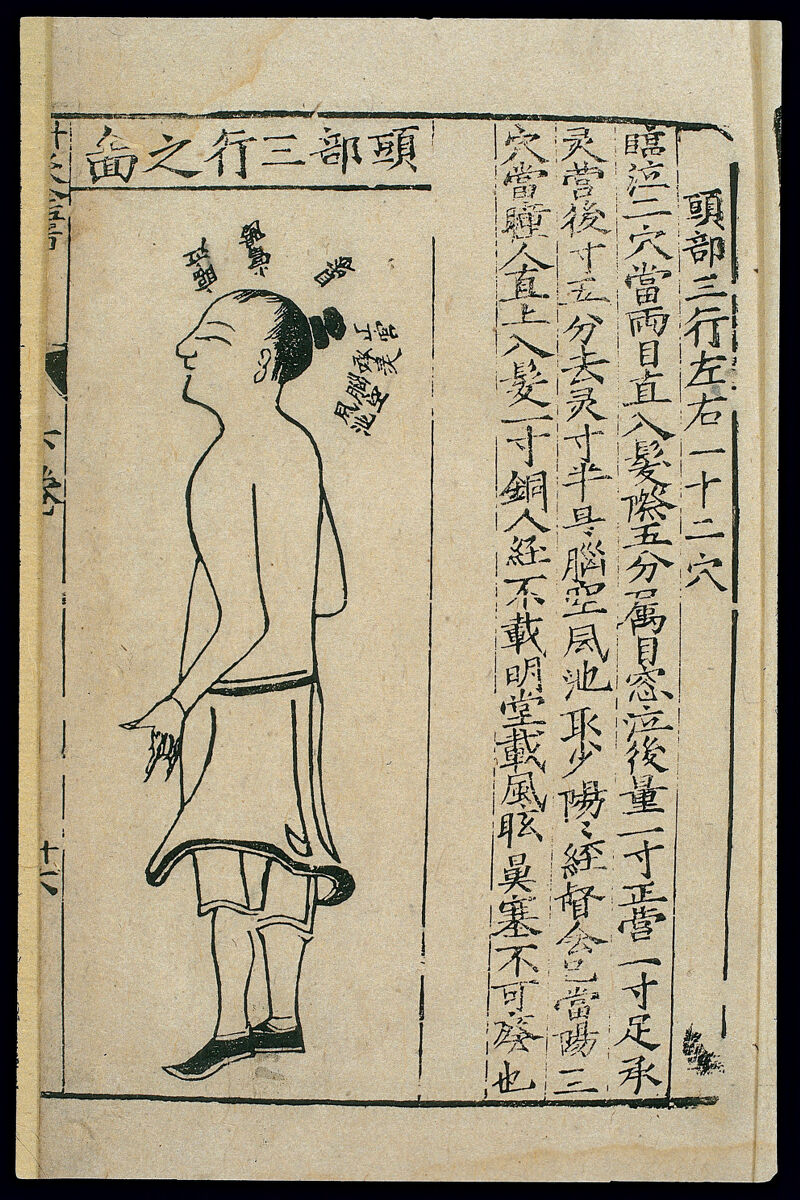 頭部三行左右一十二穴
臨泣二穴當両目直入髮際五分属目窓泣後量一寸正营一寸足承
灵营後寸五分去灵寸半是〻腦空凨池 少陽〻経督会 當陽三
穴當瞳人直上入髮一寸銅人経不載明堂載風眩鼻塞不可廢也
頭部三行之啚
臨泣
正营
承灵
腦空
凨池
卷
十六